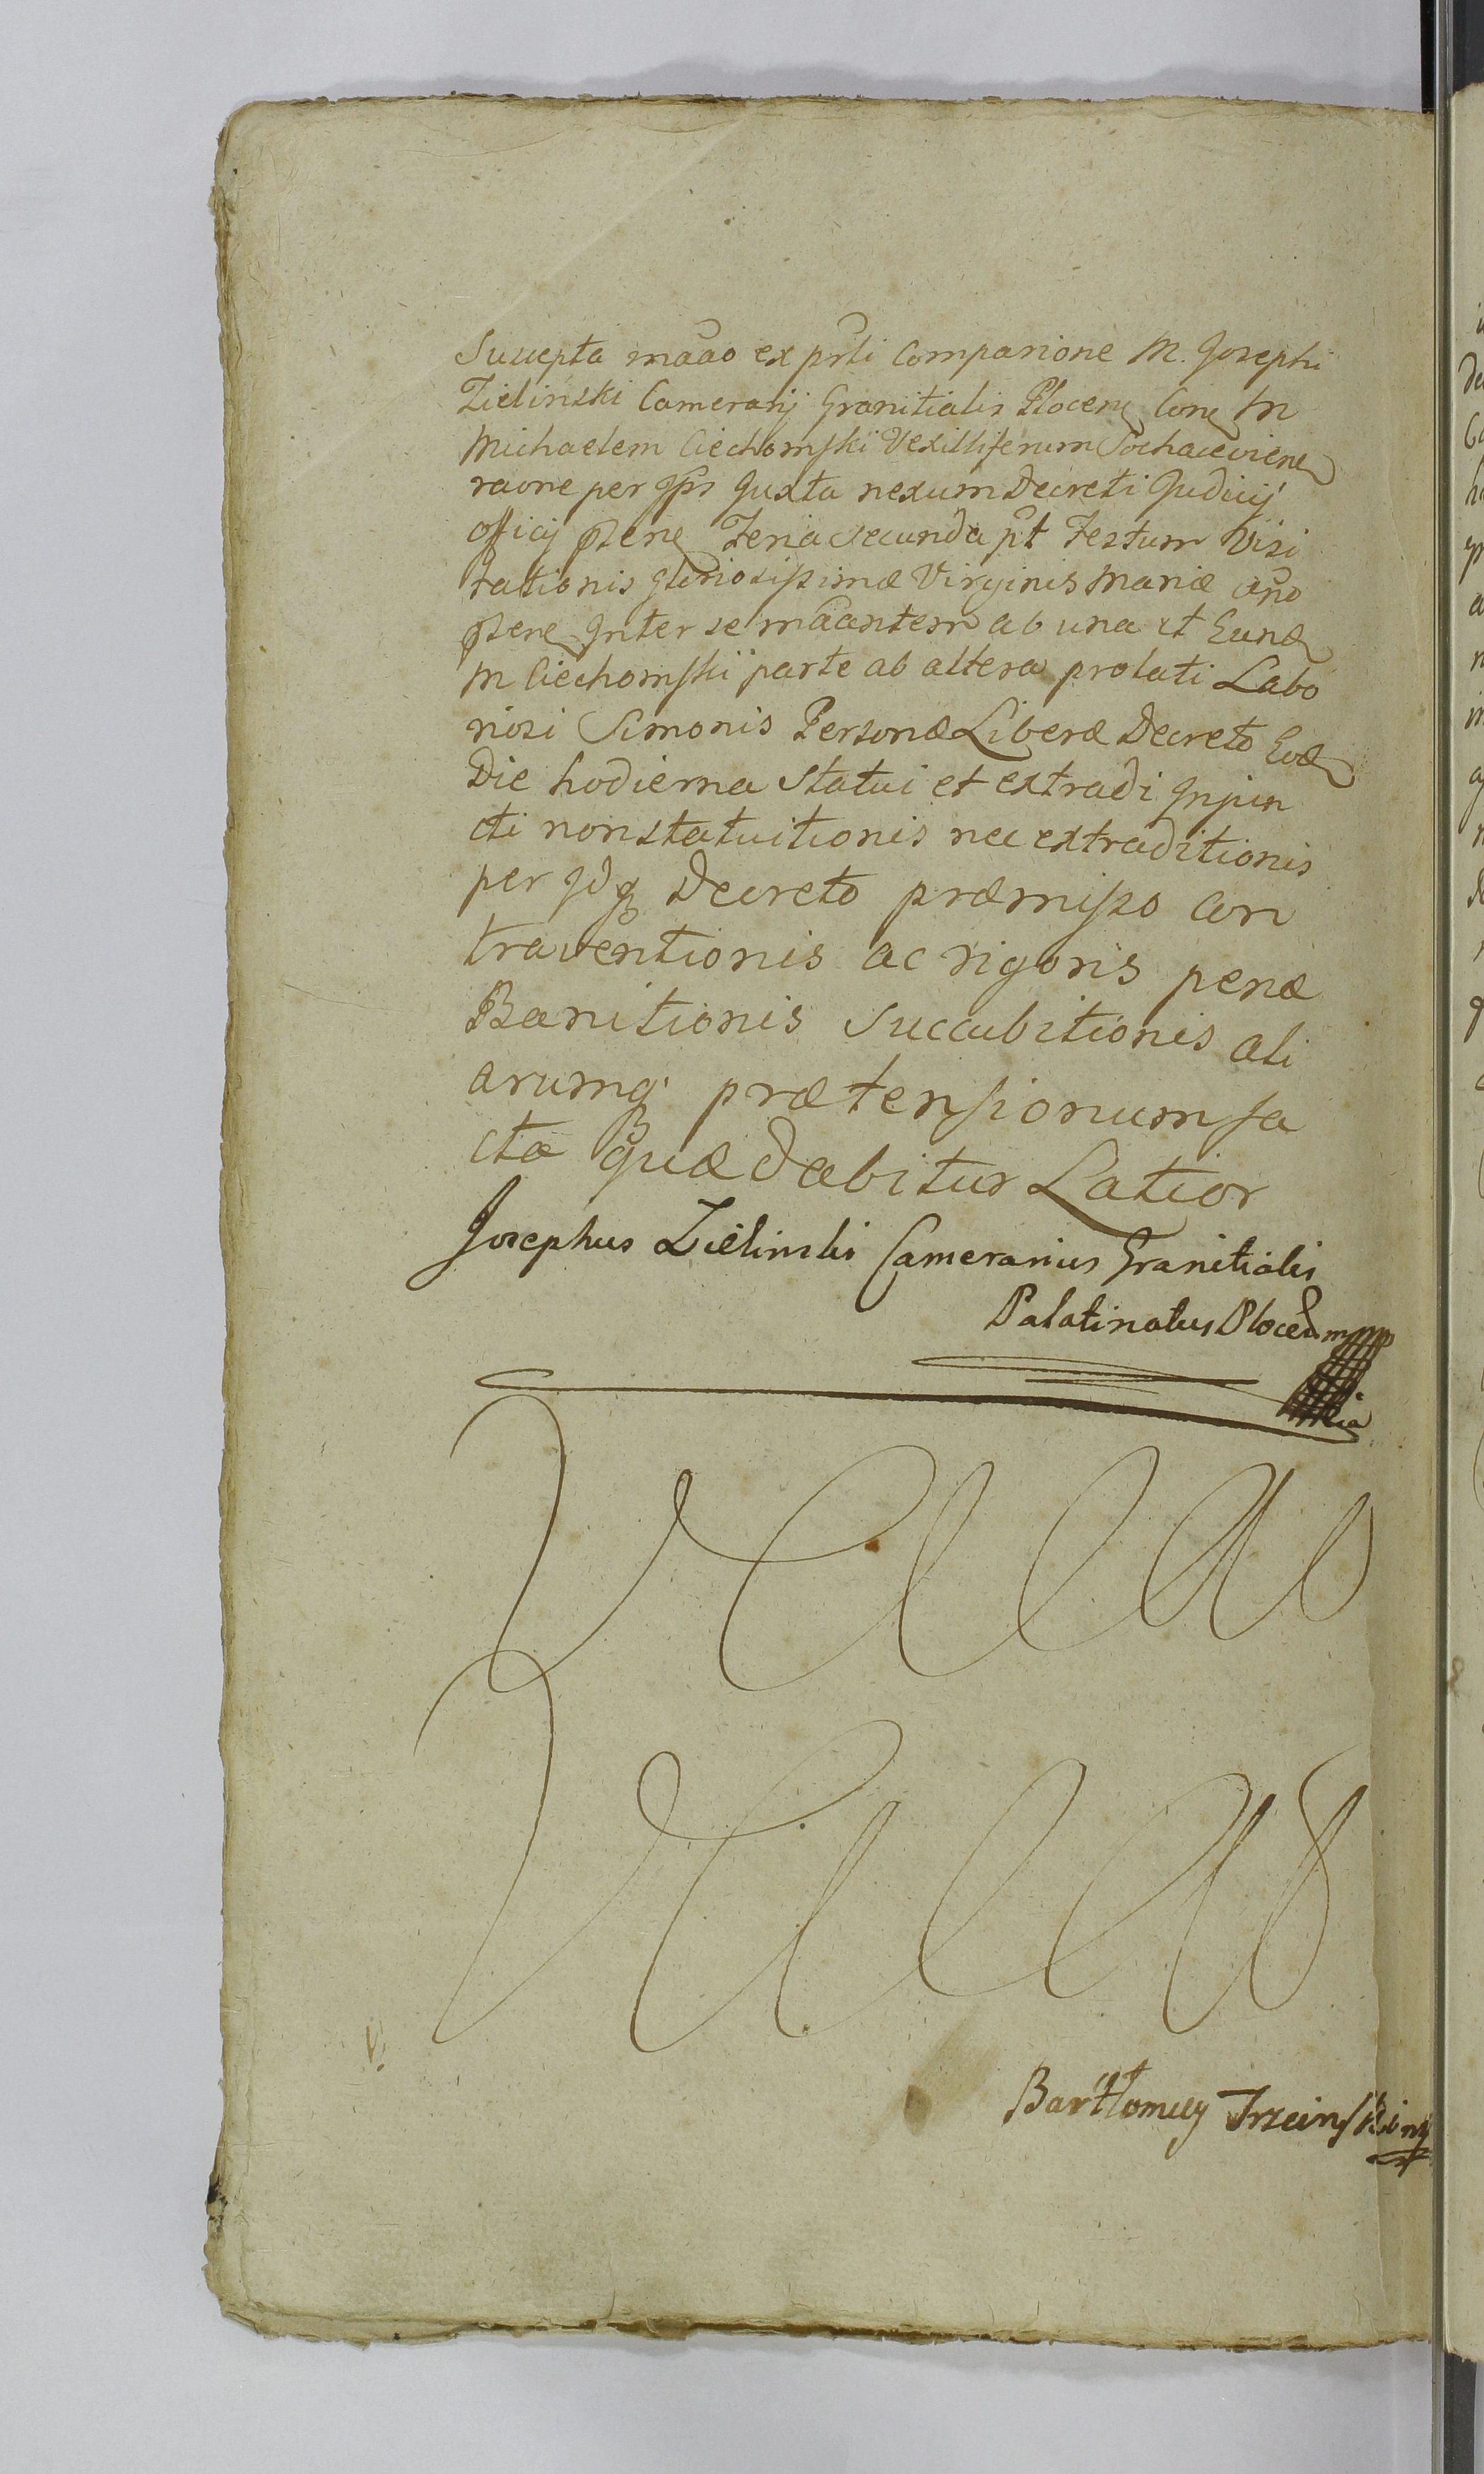 Suscepta maao ex prti Comparione M. Josephi
Zielinski Camerarij Granitialis Plocen Con M
Michaelem Ciechomski Vexilliferum Sochaceviene
raone per Jps Juxta nexum Decreti Judicij
officij psene Feria secunda pt Festum Visi
tationis gloriosissimæ Virginis Mariæ ano
psene Inter se maantem ab una et Eund
M Ciechomski parte ab altera prolati Labo
riosi Simonis Personæ Liberæ Decreto Eod
Die hodierna Statui et extradi Injun
cti non statuitionis nec extraditionis
per Jdq Decreto præmisso con
traventionis ac rigoris penæ
Banitionis Succubitionis ali
arumq prætensionum fa
cta quæ dabitur Latior
Josephus Zielinski Camerarius Granitialis
Palatinatus Plocen mpp
Bartłomiey Trzcinski mp